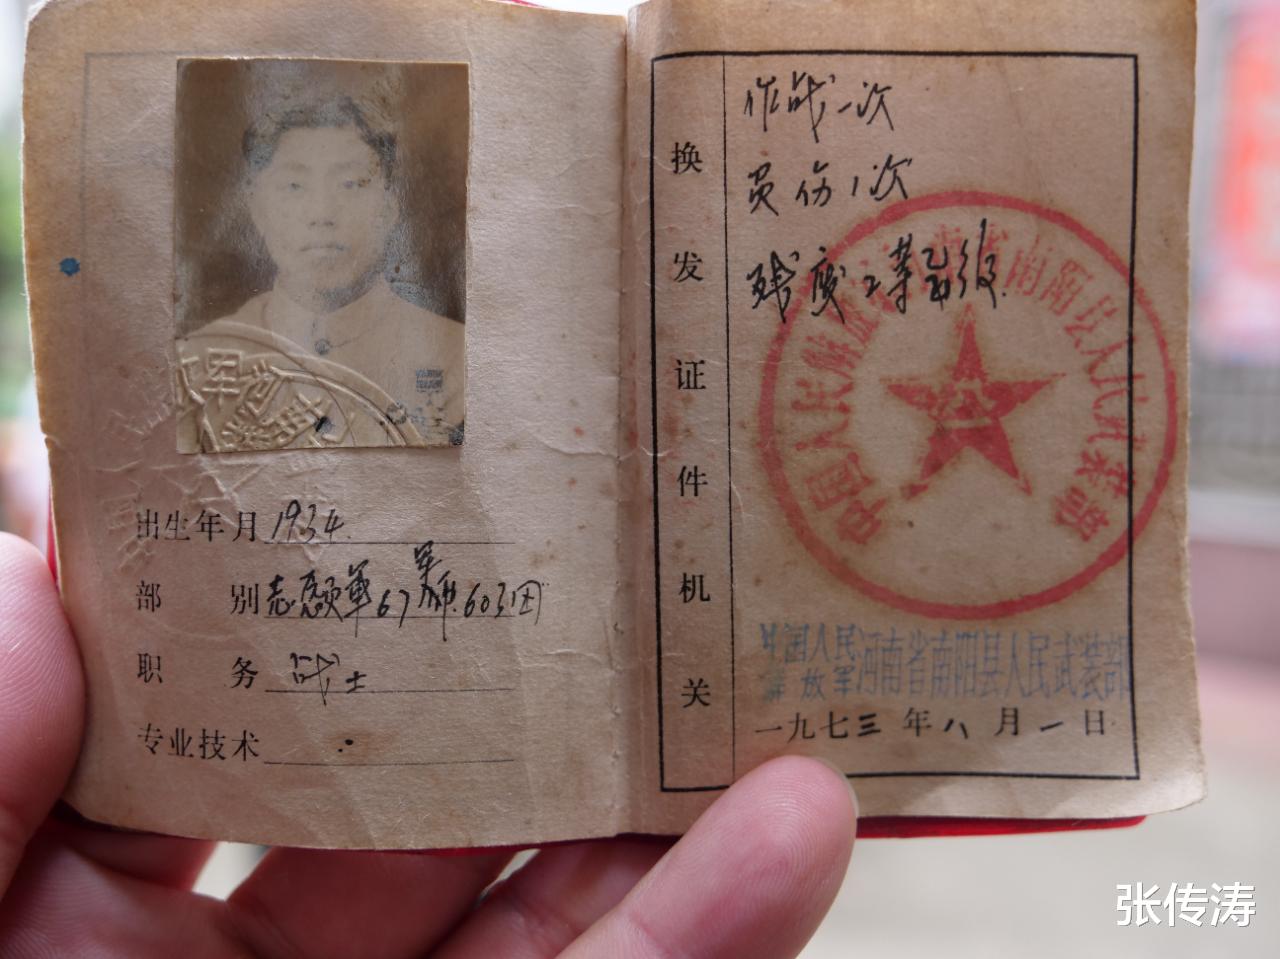 出生年月 1934.
部别 志愿軍67軍 师.603团
职务 战士
专业技术
作战一次
负伤1次
残废二等乙级
换发证件机关
中国人民解放军河南省南阳县人民武装部
中国人民解放军河南省南阳县人民武装部
一九七三年八月一日
张传涛